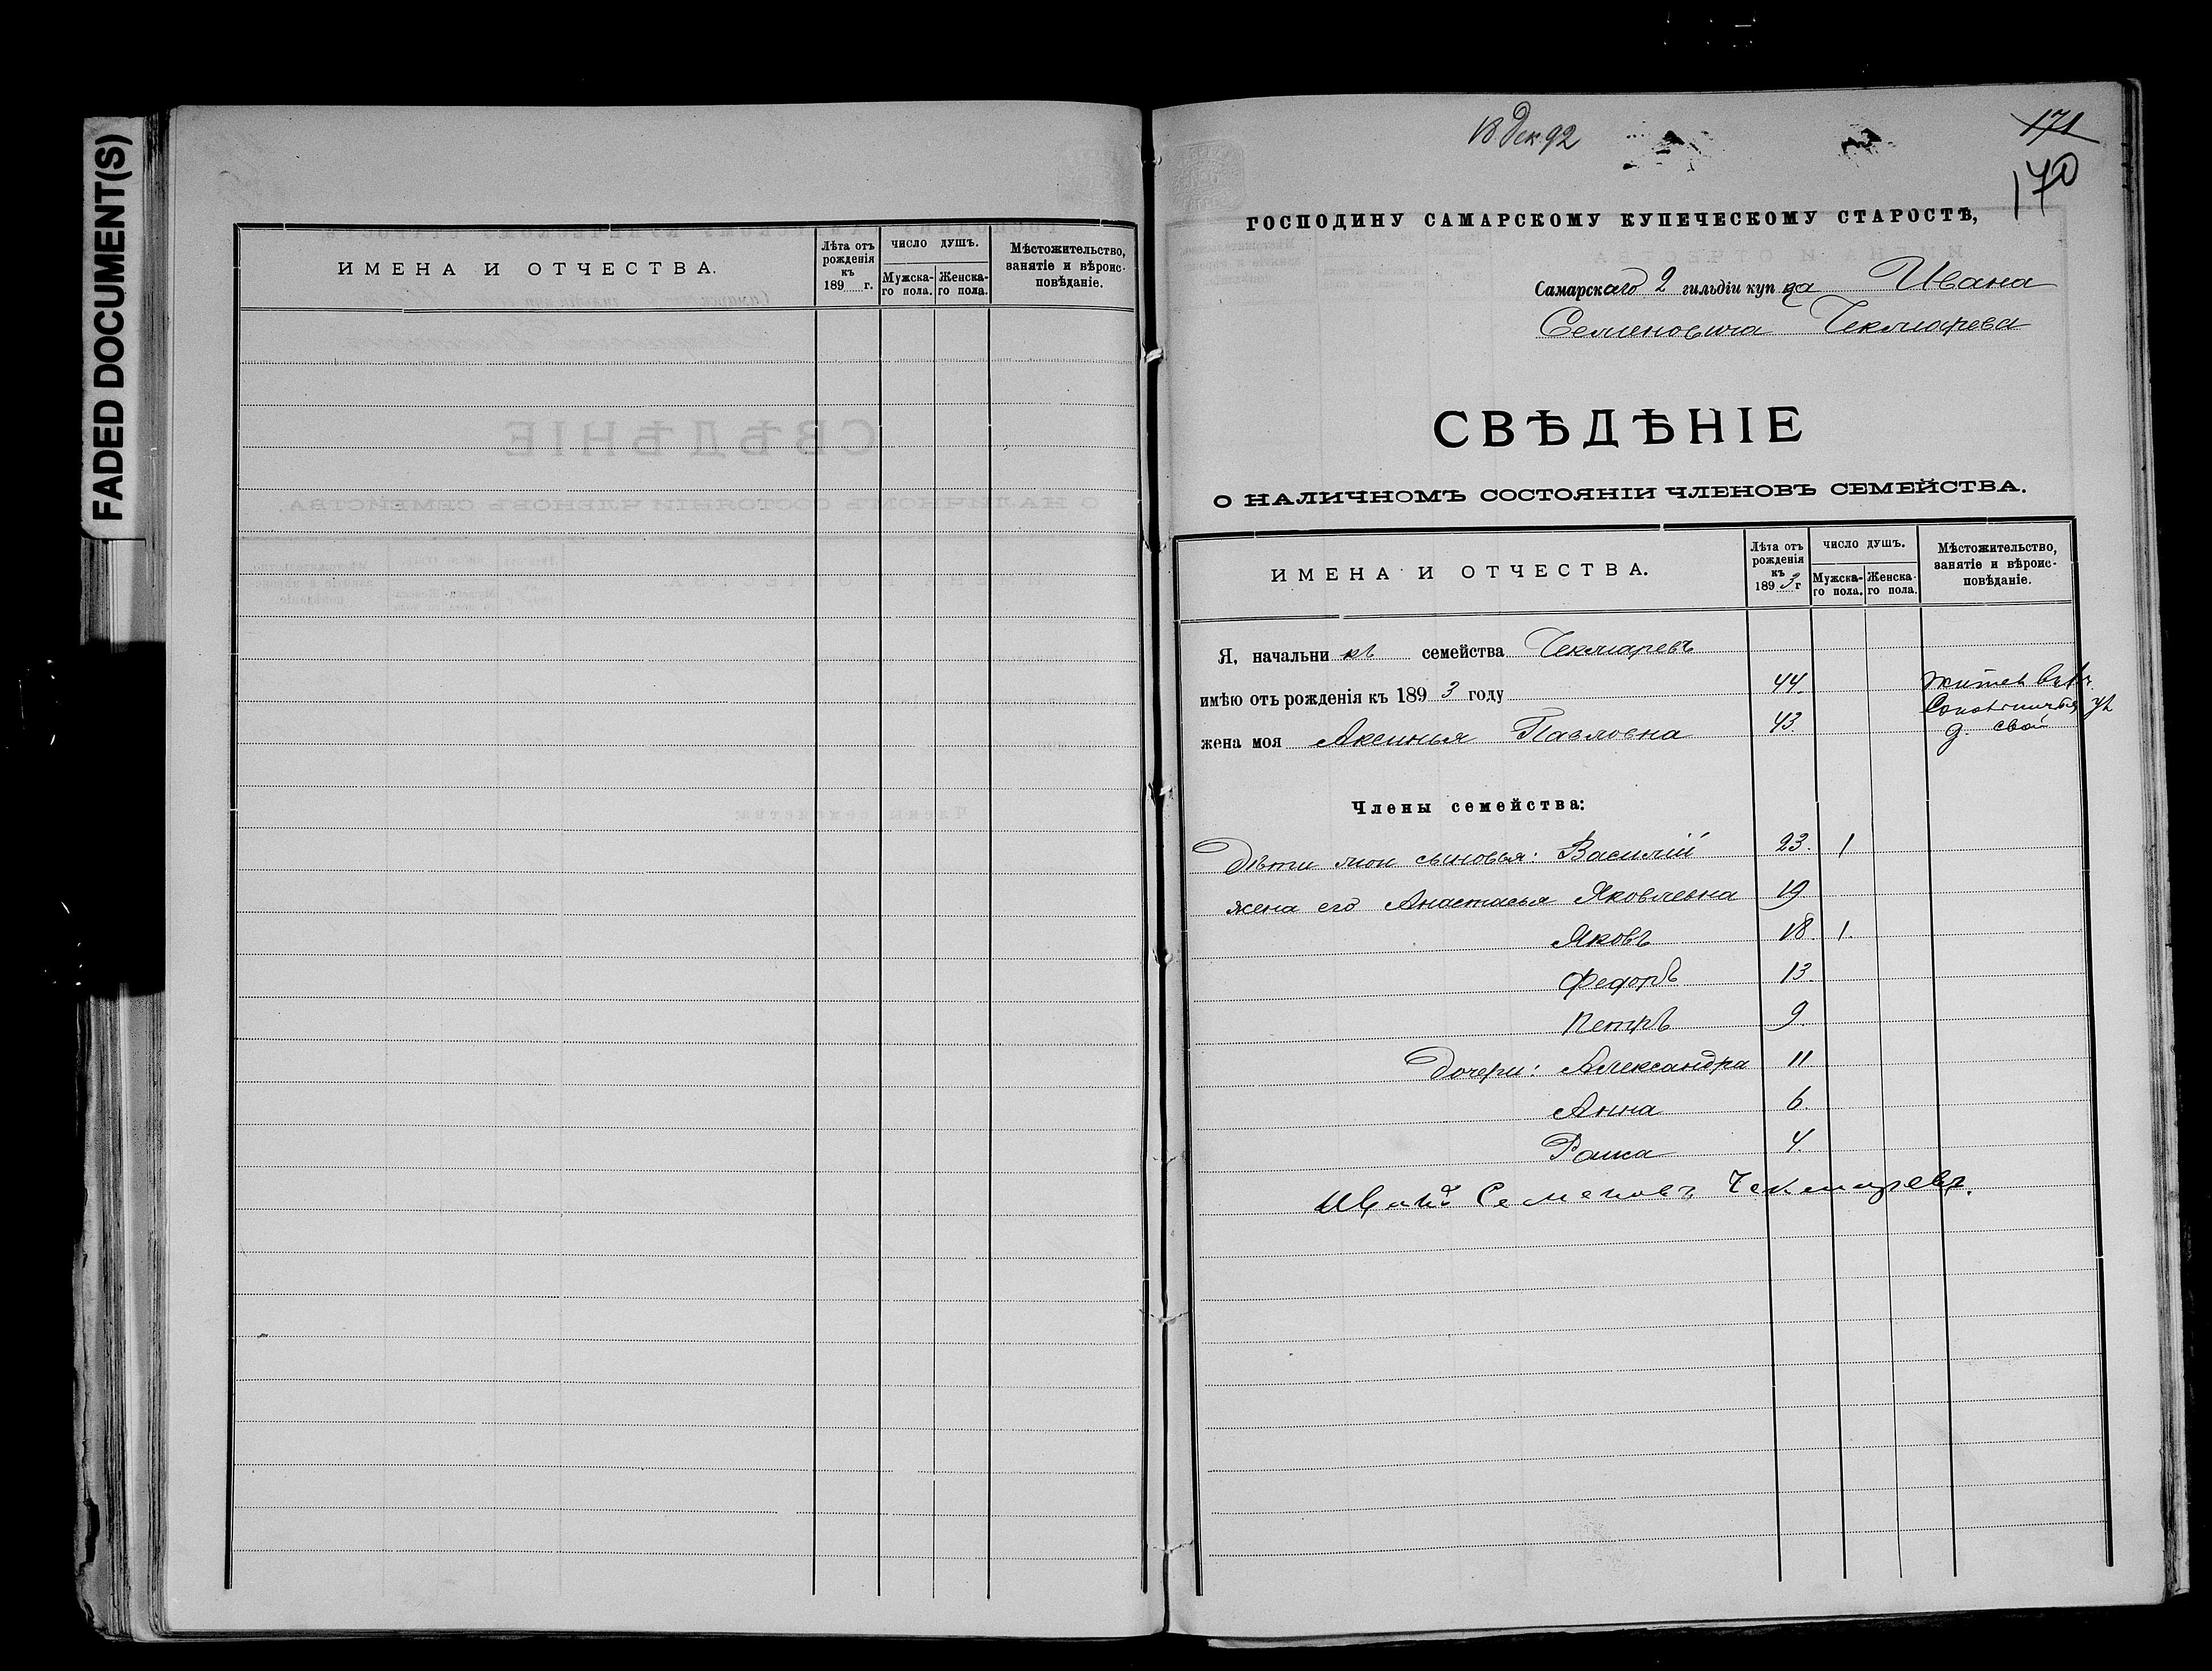 FADED DOCUMENT(S)
ИМЕНА И ОТЧЕСТВА.
Лѣта отъ рожденія къ 189 г.
ЧИСЛО ДУШЪ.
Мужска-го пола.
Женска-го пола.
Мѣстожительство, занятіе и вѣроис-повѣданіе.
18 Дек 92
171
170
ГОСПОДИНУ САМАРСКОМУ КУПЕЧЕСКОМУ СТАРОСТѢ,
Самарскаго 2 гильдіи купца Ивана
Семеновича Чекмарева
СВѢДѢНІЕ
О НАЛИЧНОМЪ СОСТОЯНІИ ЧЛЕНОВЪ СЕМЕЙСТВА.
ИМЕНА И ОТЧЕСТВА.
Лѣта отъ рожденія къ 1893 г
ЧИСЛО ДУШЪ.
Мужска-го пола.
Женска-го пола.
Мѣстожительство, занятіе и вѣроис-повѣданіе.
Я, начальникъ семейства Чекмаревъ
имѣю отъ рожденія къ 1893 году 44.
жена моя Аксинья Павловна 43.
д. свой
Члены семейства:
Дѣти мои сыновья: Василій 23. 1
жена его Анастасья Яковлевна 19
Яковъ 18. 1.
Федоръ 13.
Петръ 9.
Дочери: Александра 11
Анна 6.
Раиса 4.
Иванъ Семеновъ Чекмаревъ.